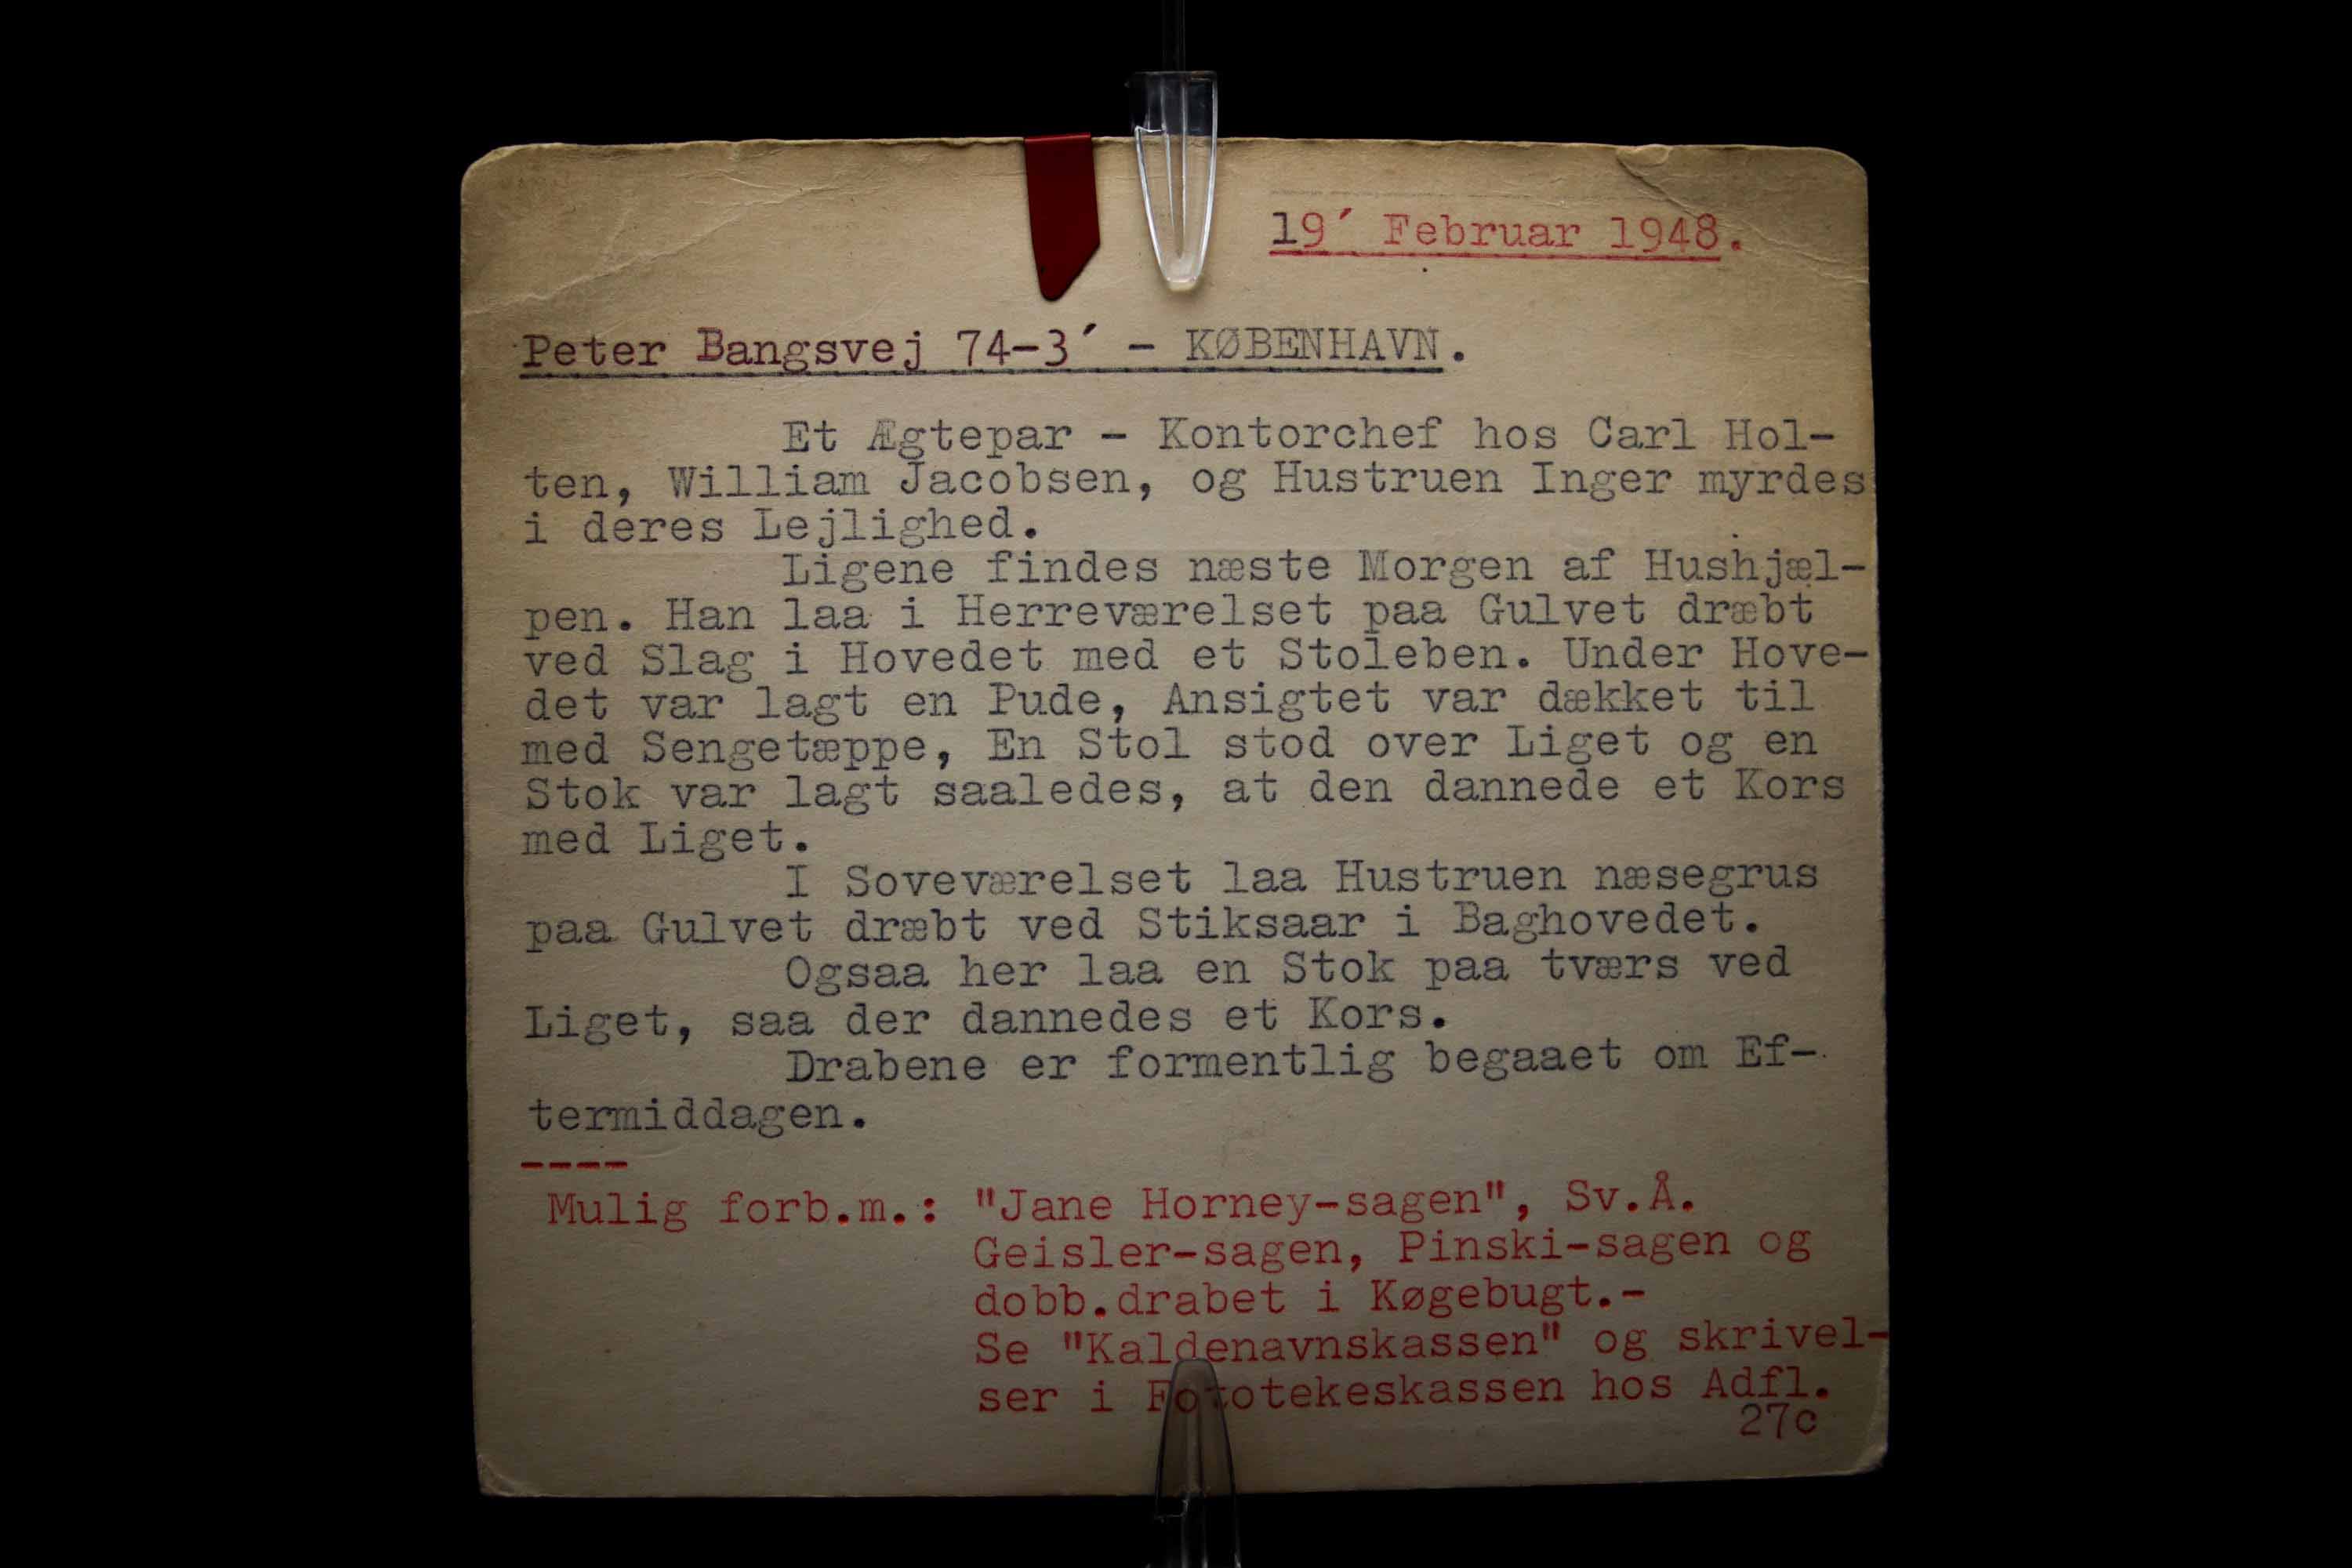 19´ Februar 1948.
Peter Bangsvej 74-3´ - KØBENHAVN.
Et Ægtepar - Kontorchef hos Carl Hol-
ten, William Jacobsen, og Hustruen Inger myrdes
i deres Lejlighed.
Ligene findes næste Morgen af Hushjæl-
pen. Han laa i Herreværelset paa Gulvet dræbt
ved Slag i Hovedet med et Stoleben. Under Hove-
det var lagt en Pude, Ansigtet var dækket til
med Sengetæppe, En Stol stod over Liget og en
Stok var lagt saaledes, at den dannede et Kors
med Liget.
I Soveværelset laa Hustruen næsegrus
paa Gulvet dræbt ved Stiksaar i Baghovedet.
Ogsaa her laa en Stok paa tværs ved
Liget, saa der dannedes et Kors.
Drabene er formentlig begaaet om Ef-
termiddagen.
----
Mulig forb.m.: "Jane Horney-sagen", Sv.Å.
Geisler-sagen, Pinski-sagen og
dobb.drabet i Køgebugt.-
Se "Kaldenavnskassen" og skrivel-
ser i Fototekeskassen hos Adfl.
27c